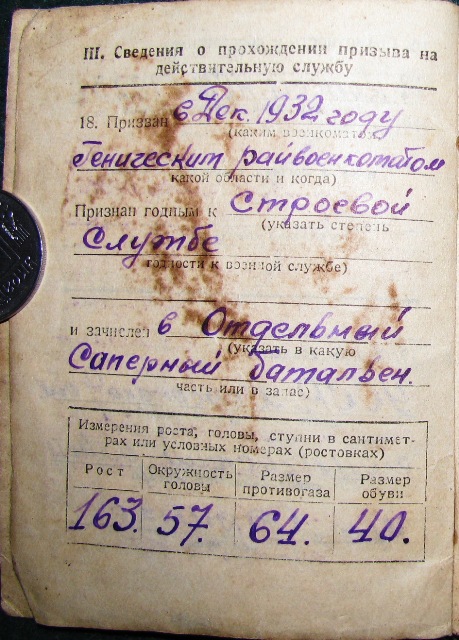 III. Сведения о прохождении призыва на
действительную службу
18. Призван в Дек. 1932 году
(каким военкоматом,
Геническим райвоенкоматом
какой области и когда)
Признан годным к строевой
(указать степень
службе
годности к военной службе)
и зачислен в Отдельный
(указать в какую
Саперный батальен.
часть или в запас)
Измерения роста, головы, ступни в сантимет-
рах или условных номерах (ростовках)
Рост Окружность головы Размер противогаза Размер обуви
163. 57. 64. 40.